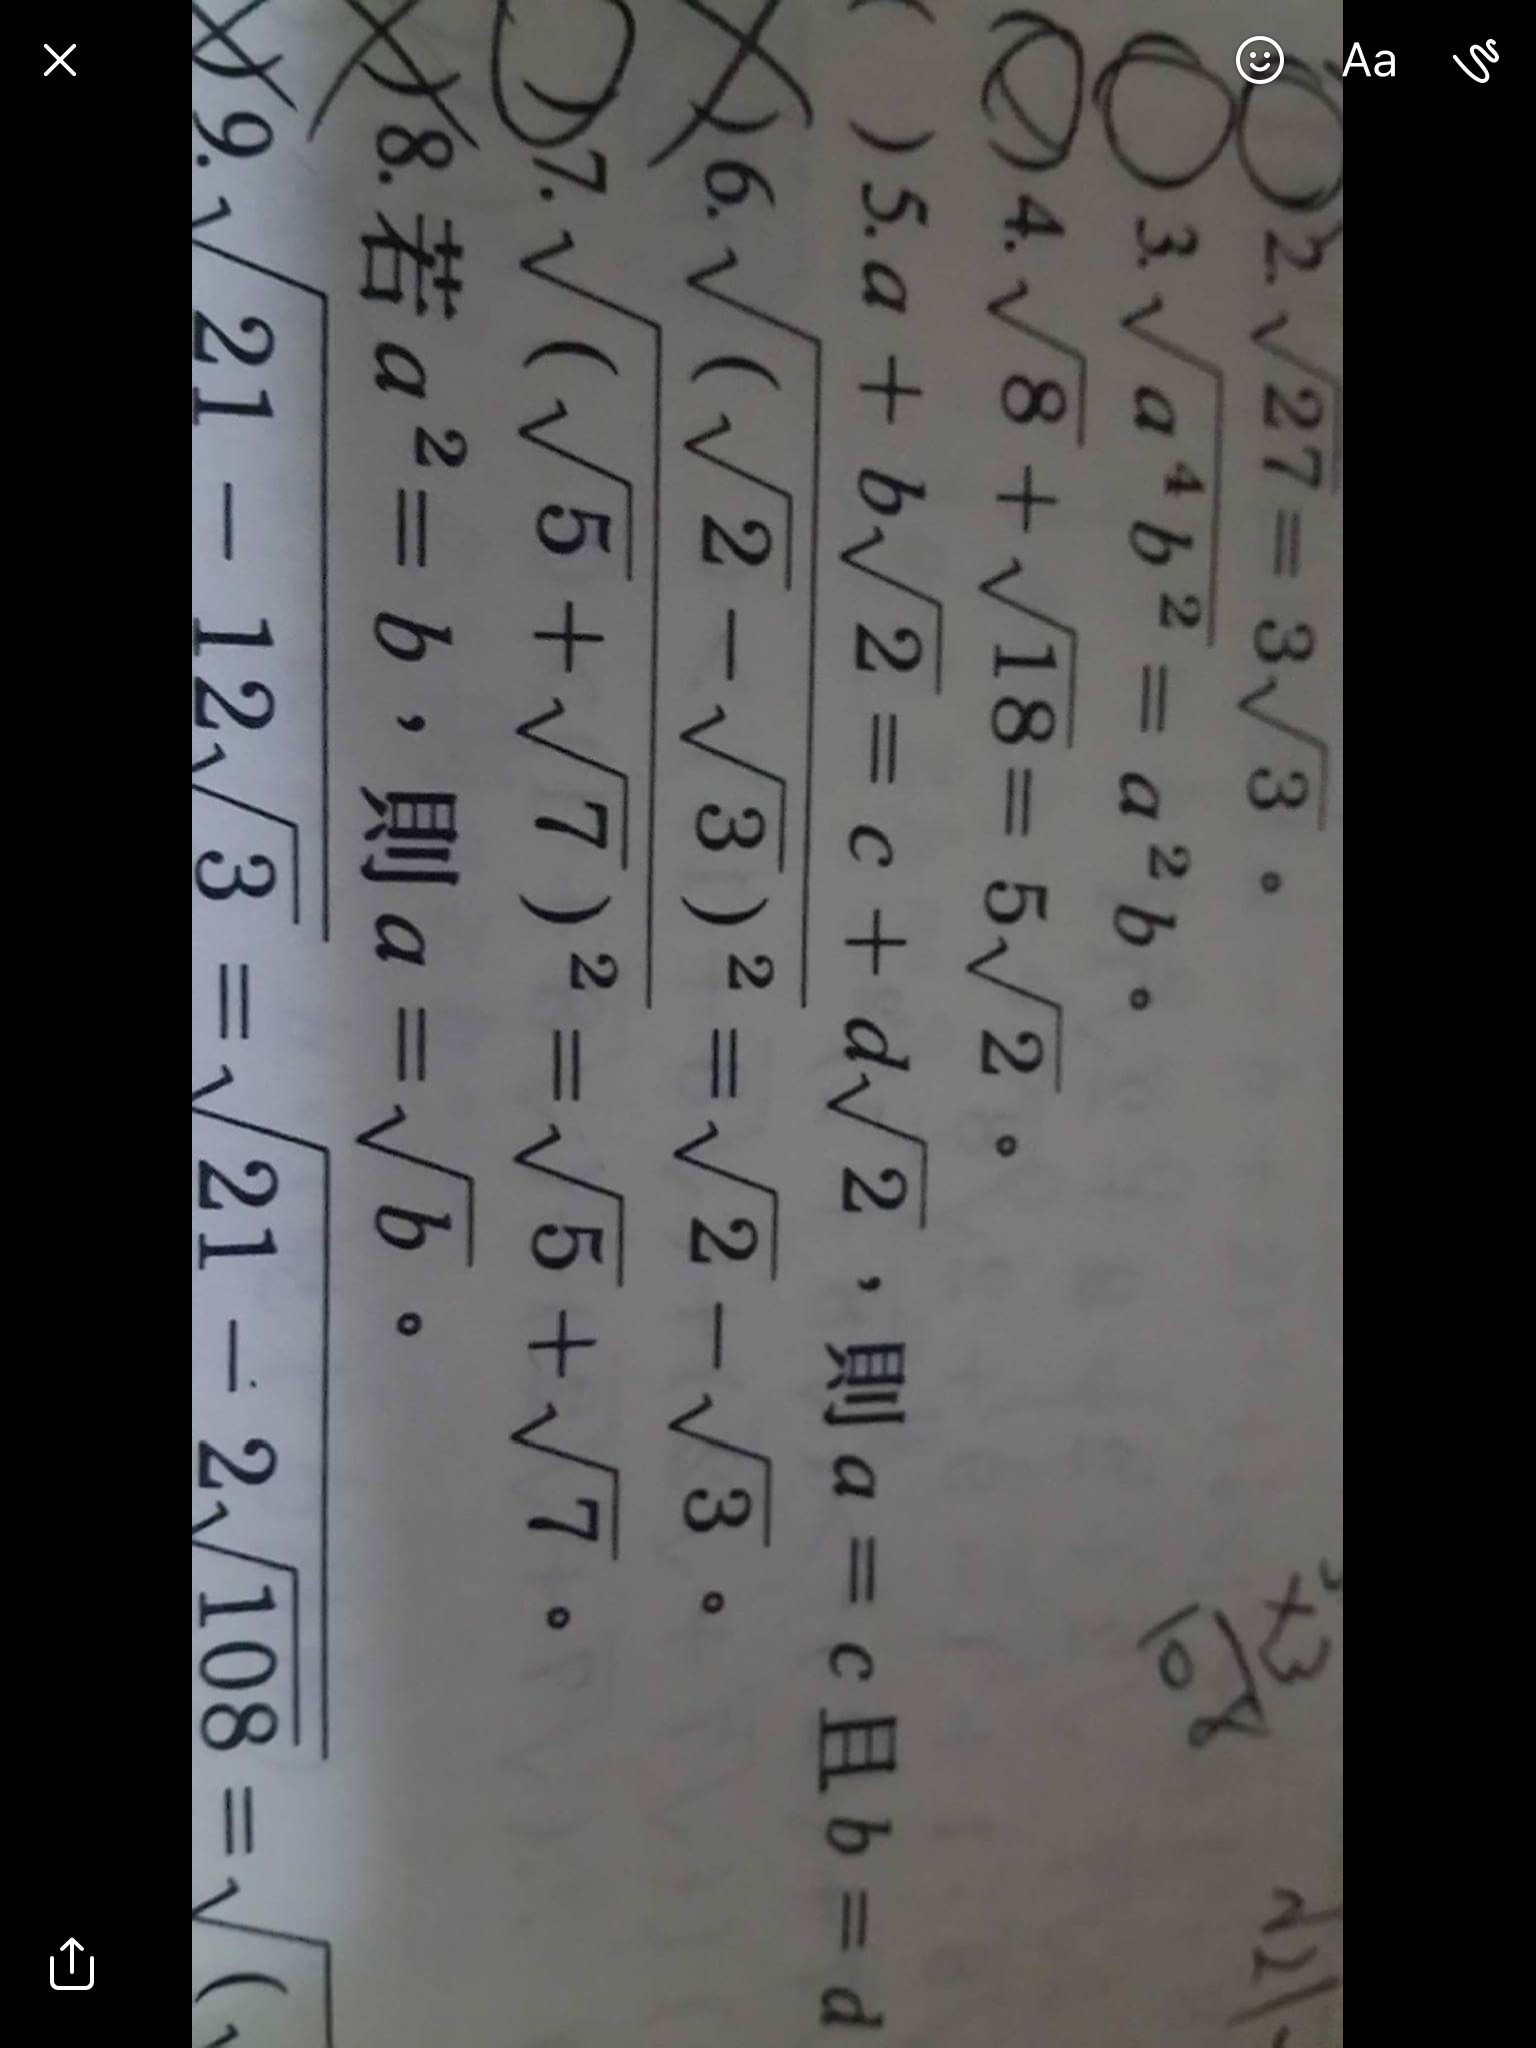 Aa
○)2.√27=3√3。
○)3.√(a⁴b²)=a²b。
(○)4.√8+√18=5√2。
( )5.a+b√2=c+d√2,則a=c且b=d
×)6.√((√2-√3)²)=√2-√3。
○)7.√((√5+√7)²)=√5+√7。
×)8.若a²=b,則a=√b。
×)9.√(21-12√3)=√(21-2√108)=√(
×3
108